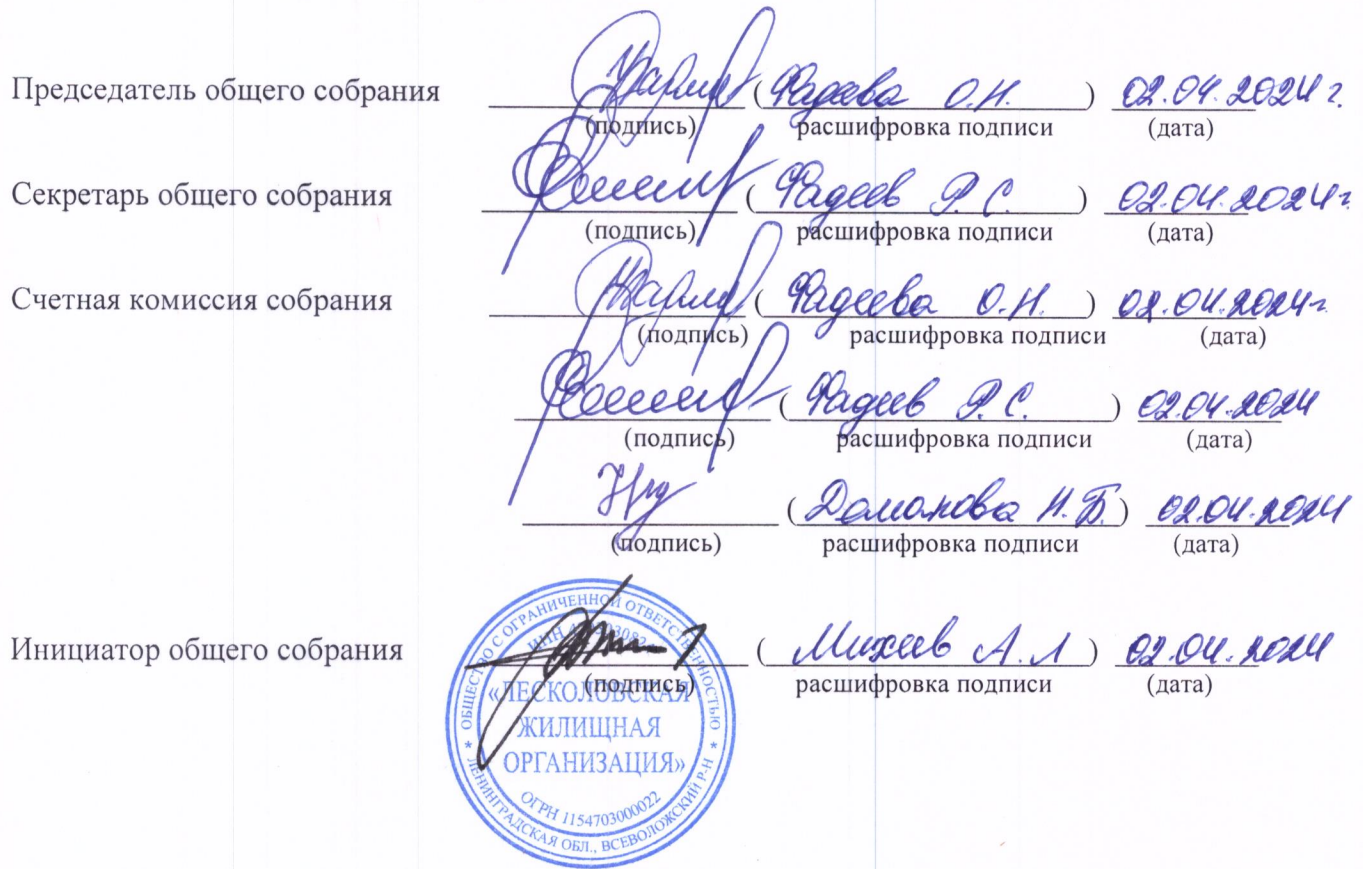 Председатель общего собрания ( Фадеева О.Н. ) 02.04.2024 г.
(подпись) расшифровка подписи (дата)
Секретарь общего собрания ( Фадеев Р.С. ) 02.04.2024г
(подпись) расшифровка подписи (дата)
Счетная комиссия собрания ( Фадеева О.Н. ) 02.04.2024г
(подпись) расшифровка подписи (дата)
( Фадеев Р.С. ) 02.04.2024
(подпись) расшифровка подписи (дата)
( Н.Б. ) 02.04.2024
(подпись) расшифровка подписи (дата)
Инициатор общего собрания ( Михеев А.Л ) 02.04.2024
(подпись) расшифровка подписи (дата)
* ОБЩЕСТВО С ОГРАНИЧЕННОЙ ОТВЕТСТВЕННОСТЬЮ *
ИНН
«ЛЕСКОЛОВСКАЯ
ЖИЛИЩНАЯ
ОРГАНИЗАЦИЯ»
ОГРН 1154703000022
ЛЕНИНГРАДСКАЯ ОБЛ., ВСЕВОЛОЖСКИЙ Р-Н